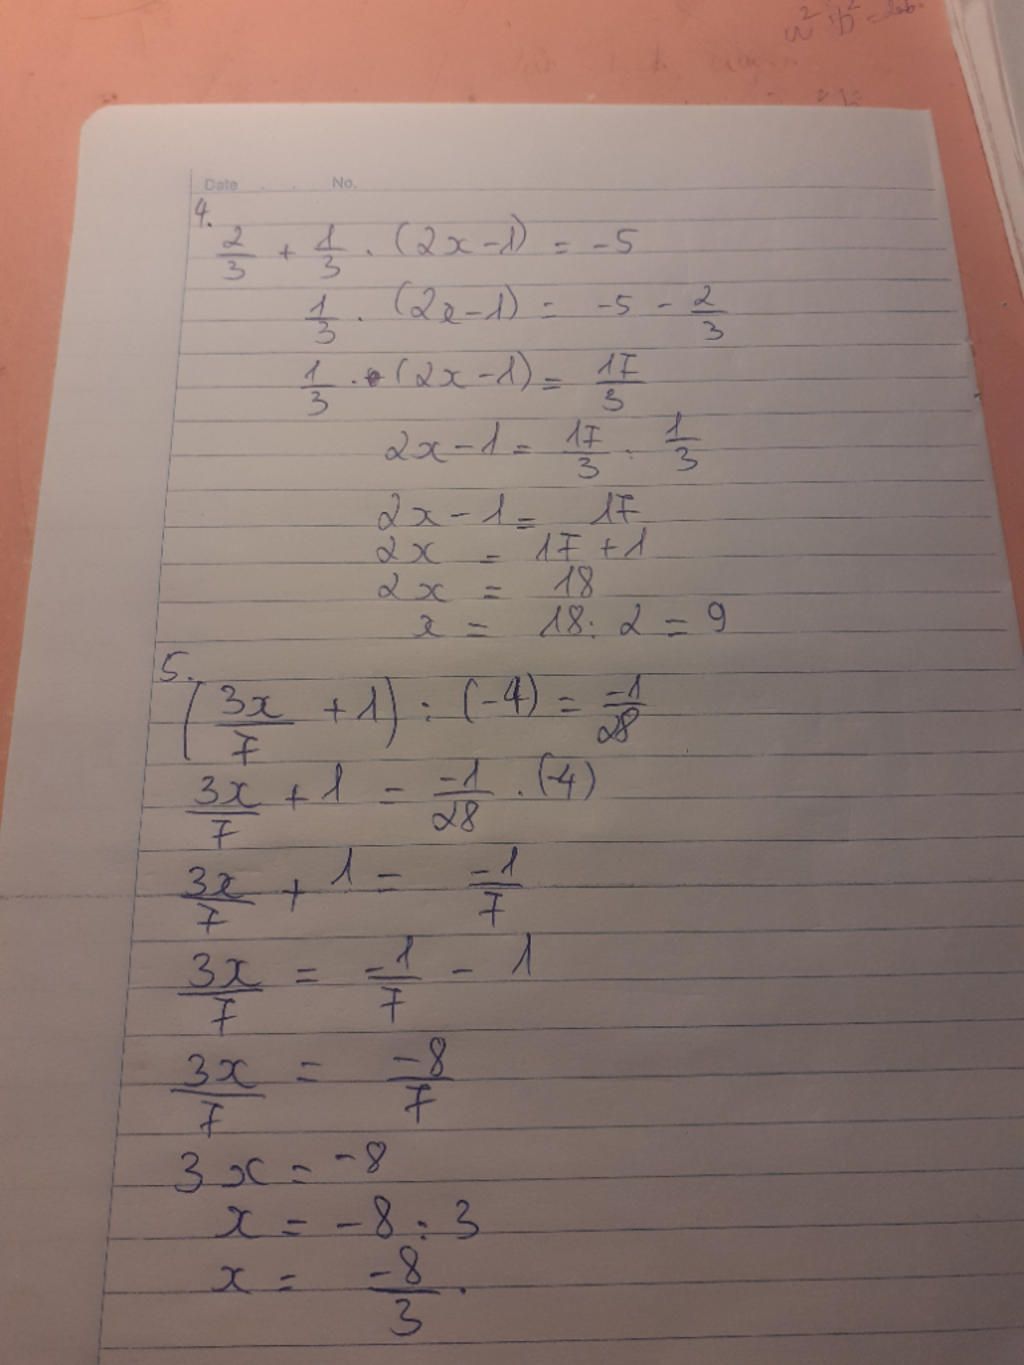 Date . . No.
4.
2/3 + 1/3 . (2x-1) = -5
1/3 . (2x-1) = -5 - 2/3
1/3 . (2x-1) = 17/3
2x-1 = 17/3 : 1/3
2x-1 = 17
2x = 17+1
2x = 18
x = 18: 2 = 9
5.
(3x/7 +1) : (-4) = -1/28
3x/7 + 1 = -1/28 . (-4)
3x/7 + 1 = -1/7
3x/7 = -1/7 - 1
3x/7 = -8/7
3x = -8
x = -8 : 3
x = -8/3.